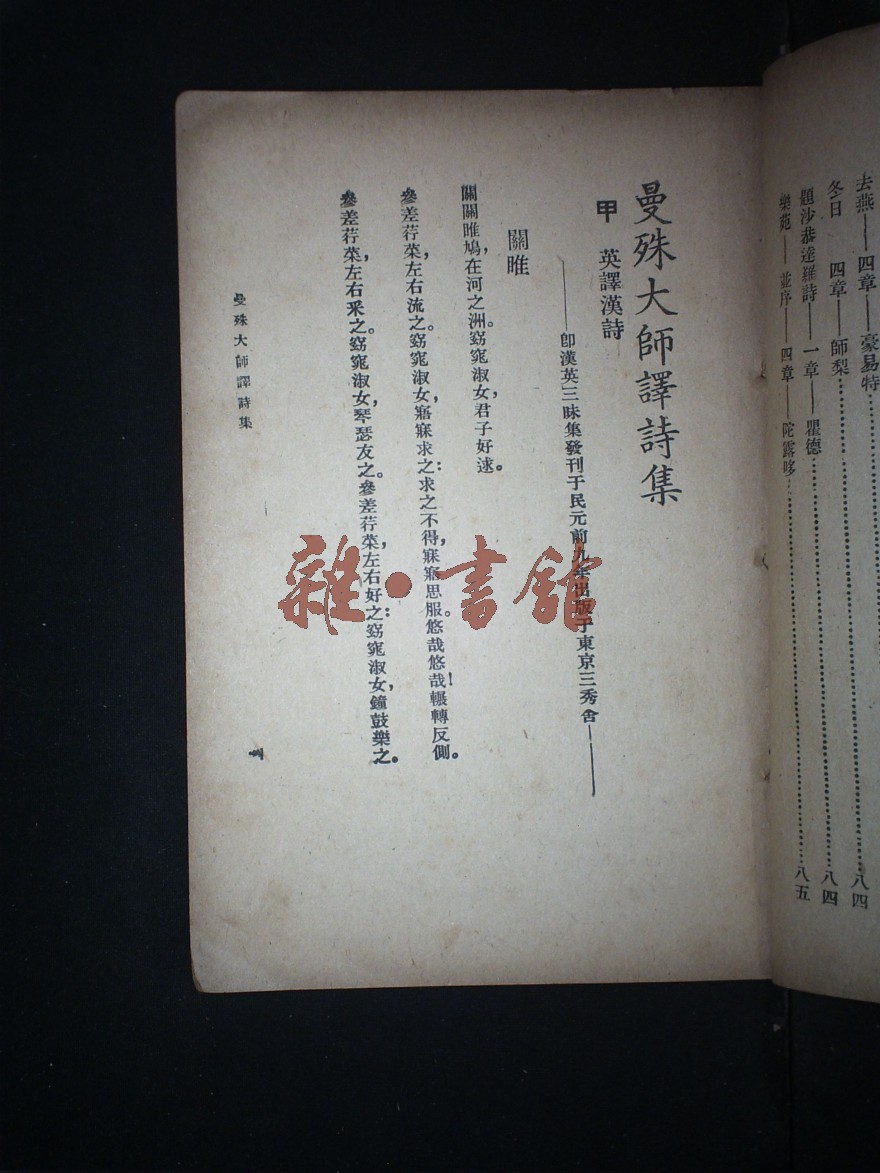 去燕——四章——豪易特
冬日 四章——師梨……八四
題沙恭達羅詩——一章——瞿德……八四
樂苑——並序——四章——陀露哆……八五
曼殊大師譯詩集
甲 英譯漢詩
——卽漢英三昧集發刊于民元前九年出版于東京三秀舍——
關雎
關關雎鳩，在河之洲。窈窕淑女，君子好逑。
參差荇菜，左右流之。窈窕淑女，寤寐求之：求之不得，寐寤思服。悠哉悠哉！輾轉反側。
參差荇菜，左右采之。窈窕淑女，琴瑟友之。參差荇菜，左右好之：窈窕淑女，鐘鼓樂之。
曼殊大師譯詩集
雜·書館